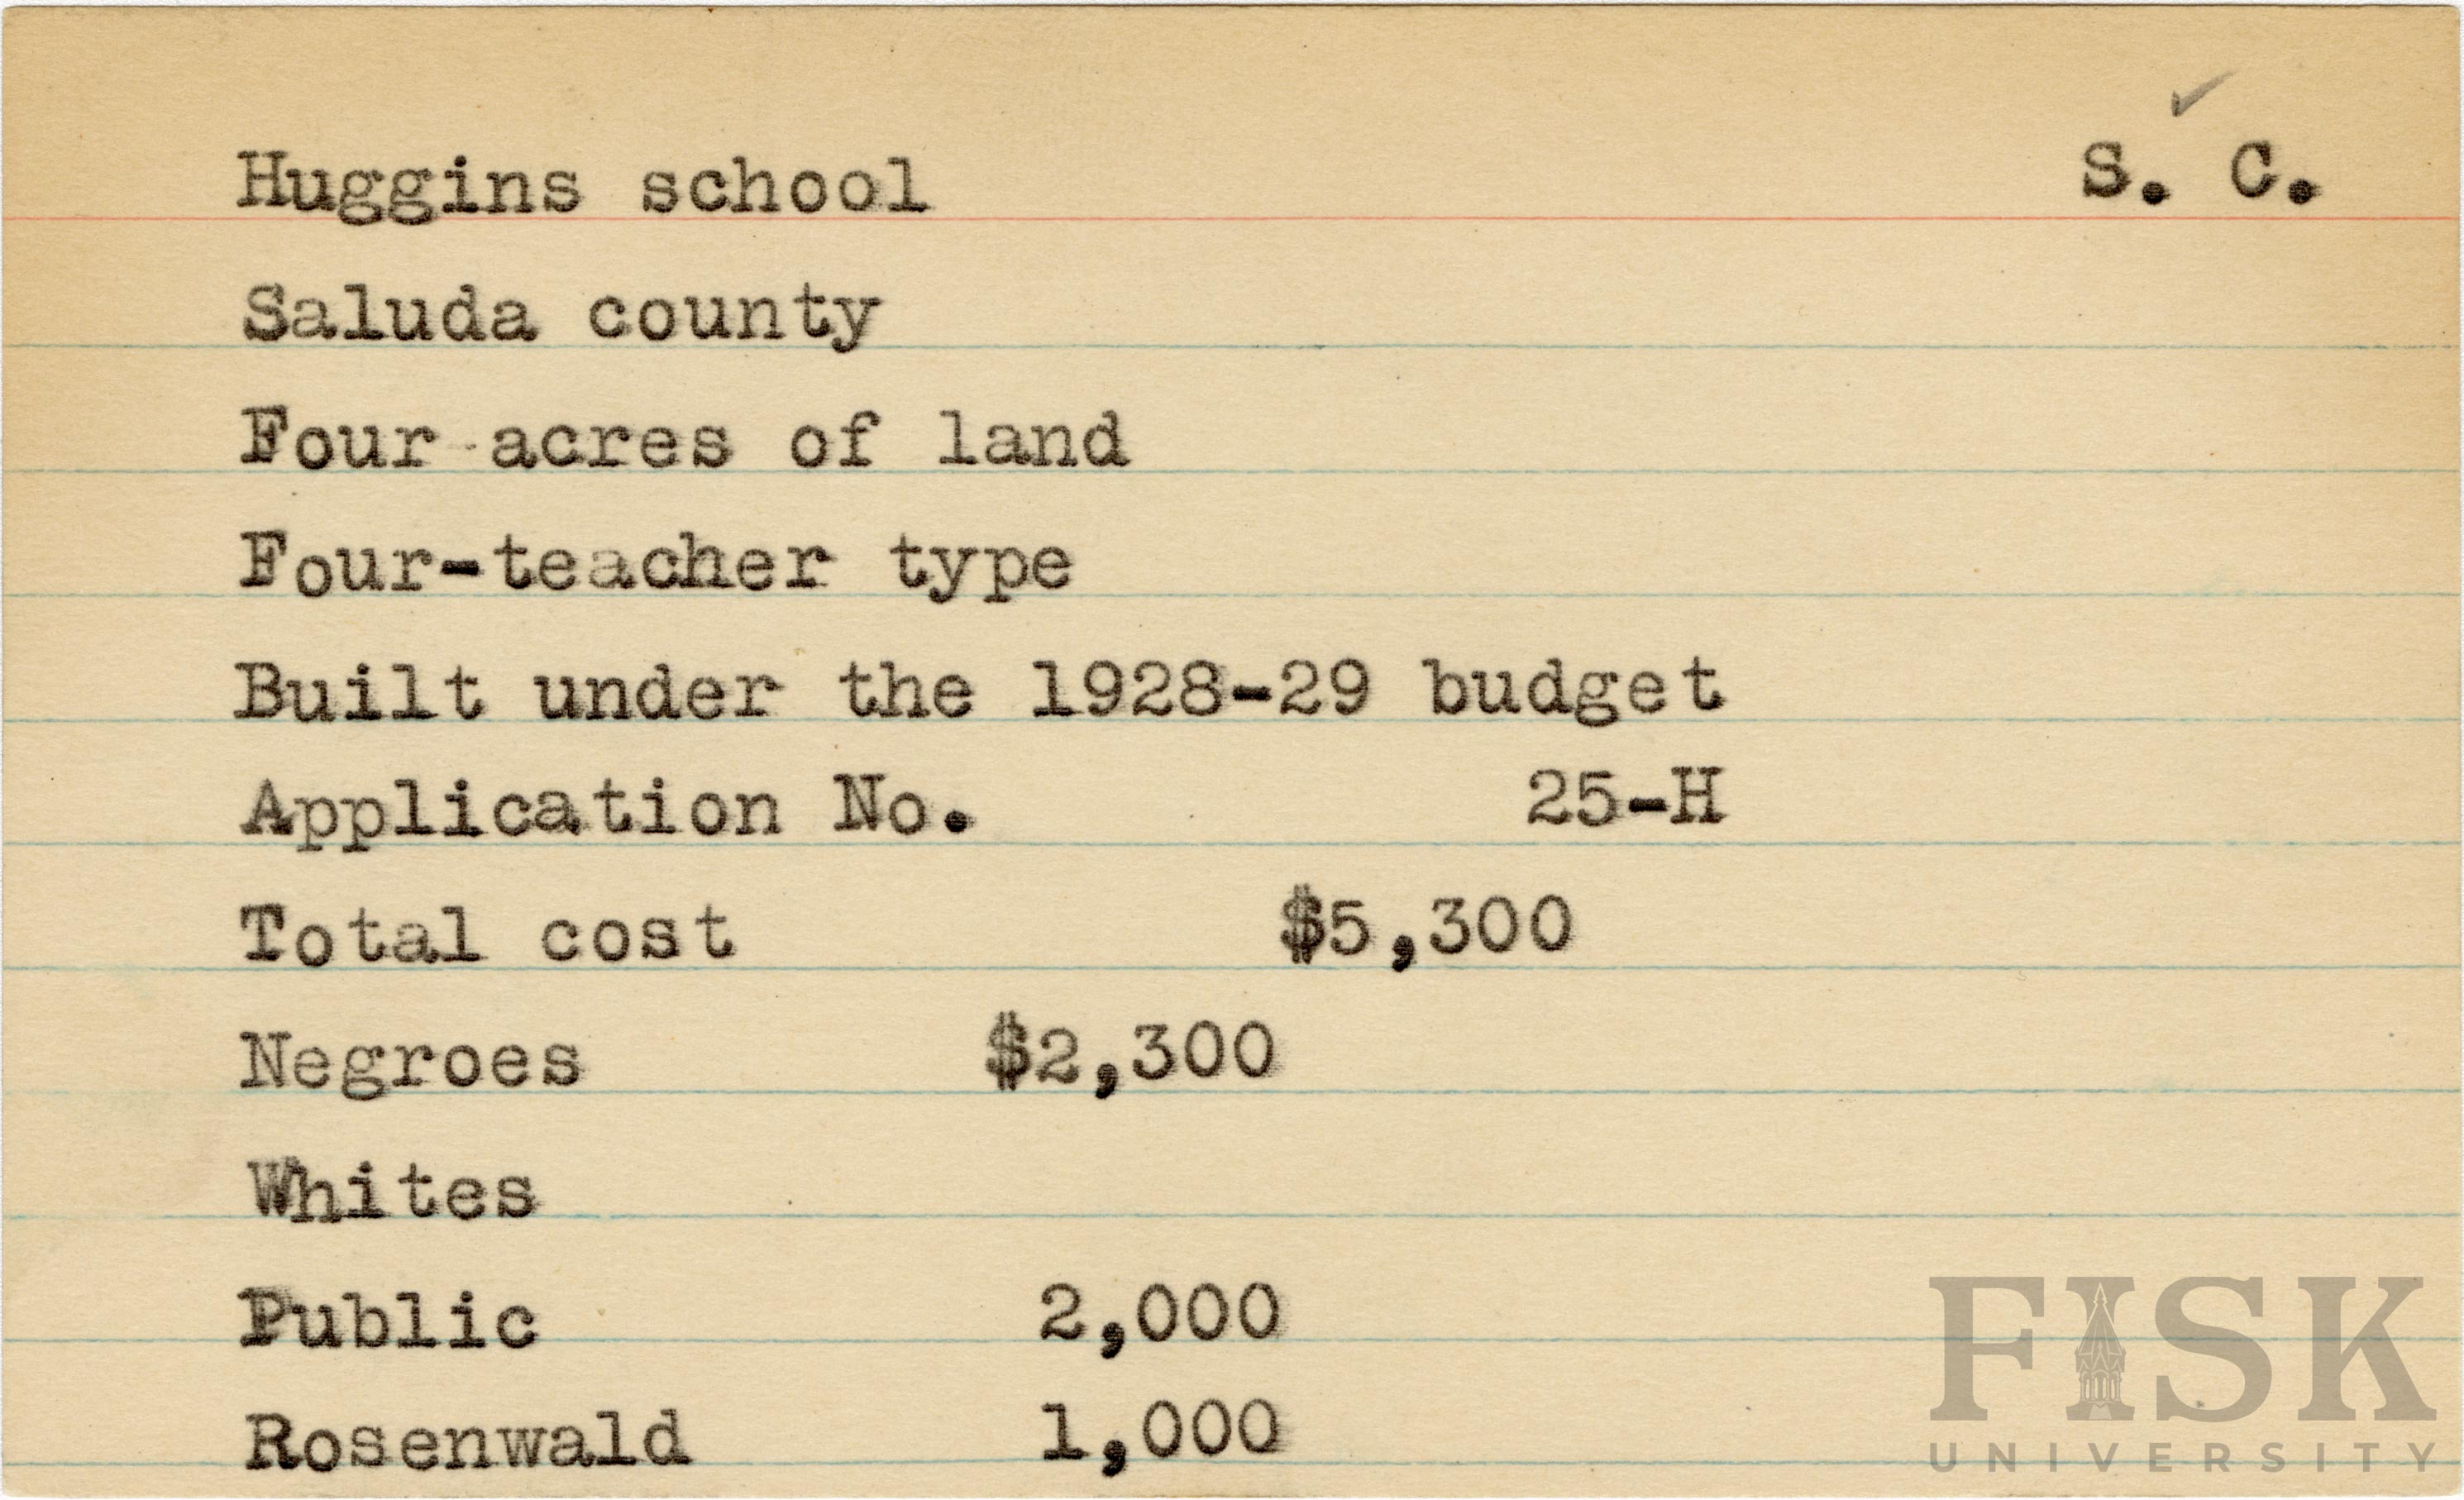 Huggins school S. C.
Saluda county
Four acres of land
Four-teacher type
Built under the 1928-29 budget
Application No. 25-H
Total cost $5,300
Negroes $2,300
Whites
Public 2,000
Rosenwald 1,000
FISK
UNIVERSITY